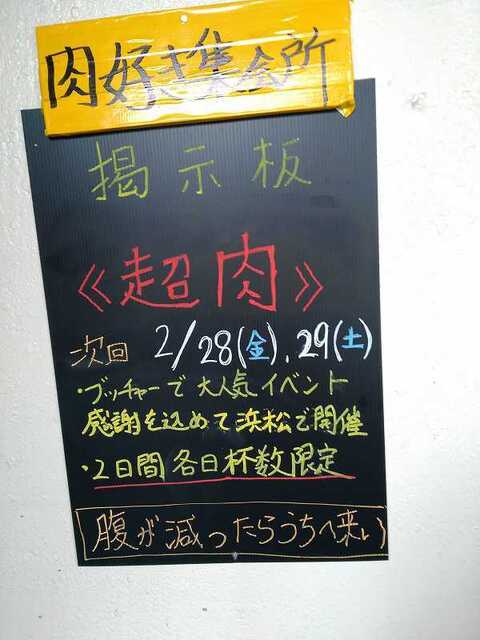 肉好き集会所
掲示板
《超肉》
次回 2/28(金)、29(土)
・ブッチャーで大人気イベント
感謝を込めて浜松で開催
・2日間各日杯数限定
腹が減ったらうちへ来い